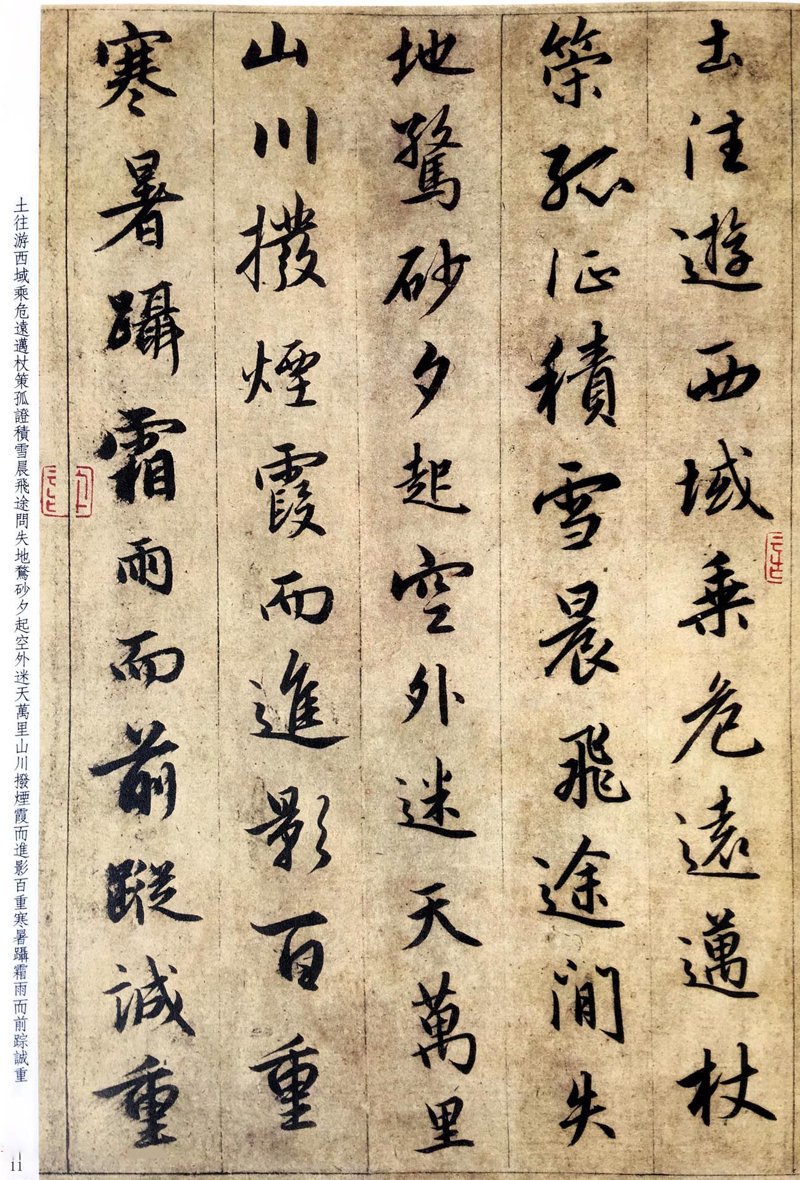 土往遊西域乗危遠邁杖
策孤征積雪晨飛途間失
地驚砂夕起空外迷天萬里
山川撥煙霞而進影百重
寒暑躡霜雨而前蹤誠重
土往游西域乘危遠邁杖策孤證積雪晨飛途問失地驁砂夕起空外迷天萬里山川撥煙霞而進影百重寒暑躡霜雨而前踪誠重
11